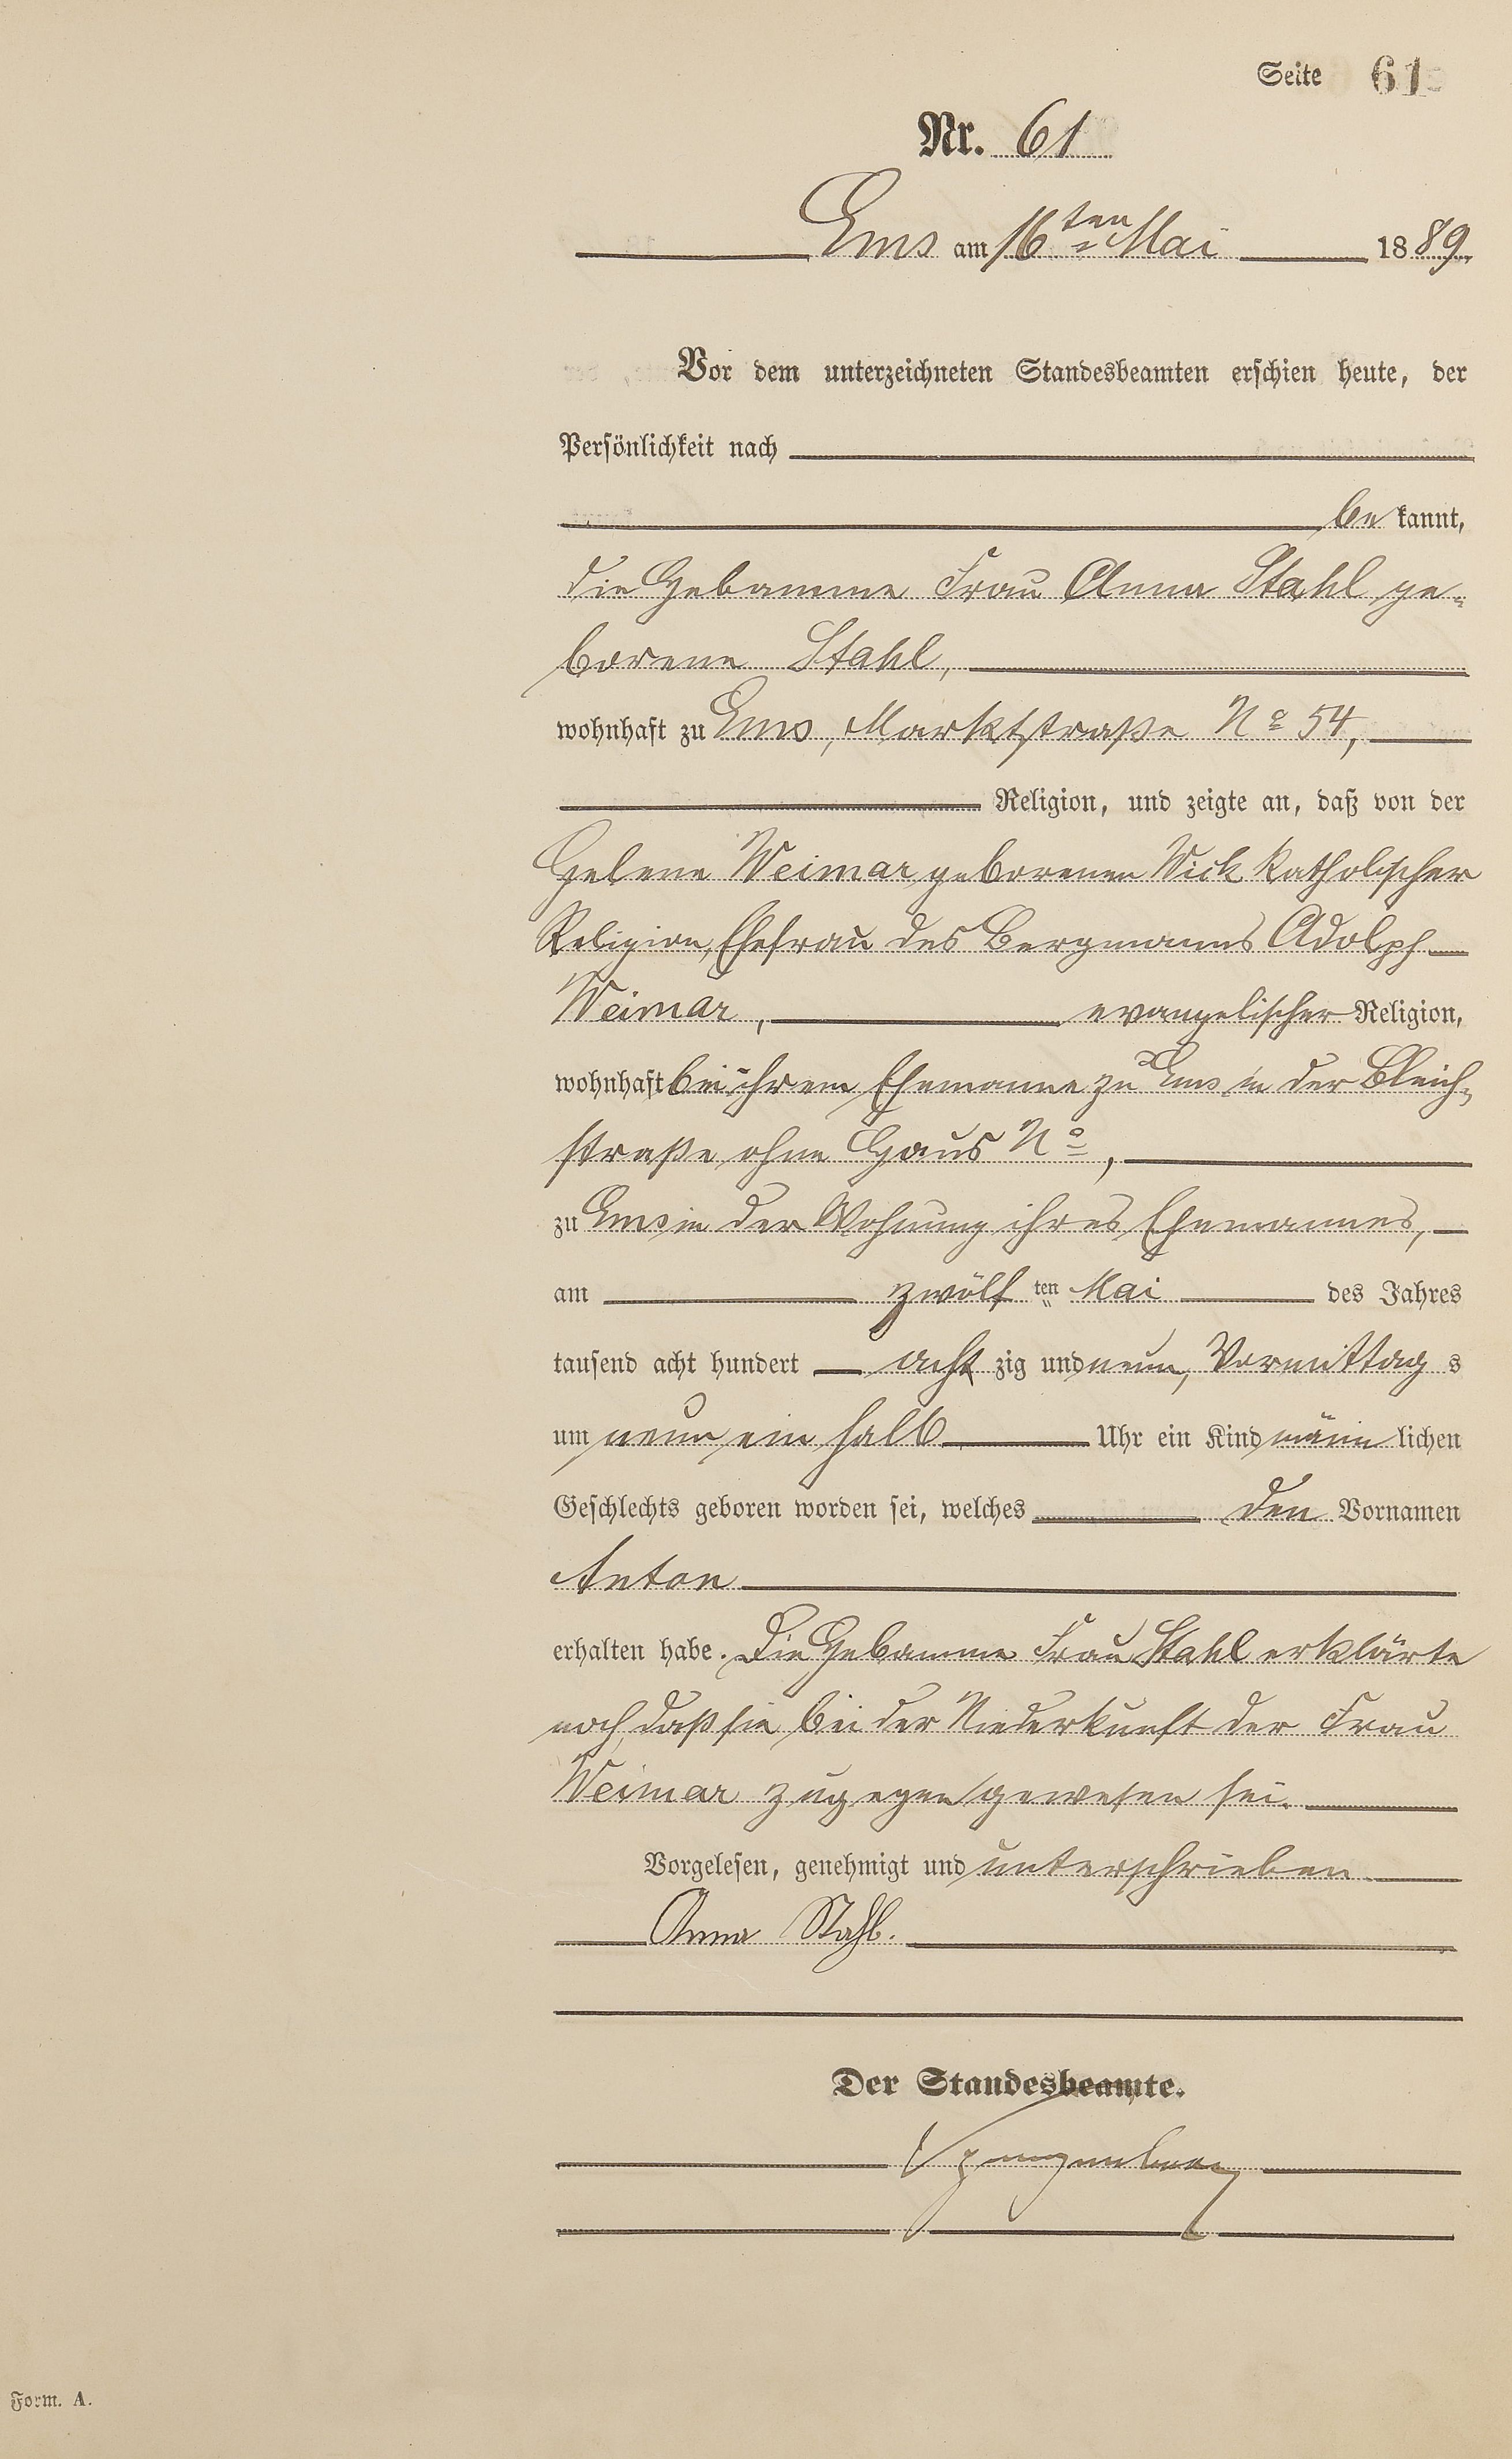 Seite 61
Nr. 61
Ems am 16ten Mai 1889.
Vor dem unterzeichneten Standesbeamten erschien heute, der
Persönlichkeit nach
bekannt,
die Hebamme Frau Anna Stahl ge-
borene Stahl,
wohnhaft zu Ems, Marktstraße No 54,
Religion, und zeigte an, daß von der
Helene Weimar geborenen Wick katholischer
Religion, Ehefrau des Bergmanns Adolph
Weimar, evangelischer Religion,
wohnhaft bei ihrem Ehemanne zu Ems in der Bleich-
straße ohne Haus No,
zu Ems in der Wohnung ihres Ehemannes,
am zwölften Mai des Jahres
tausend acht hundert achtzig und neun, Vormittags
um neun ein halb Uhr ein Kind männlichen
Geschlechts geboren worden sei, welches den Vornamen
Anton
erhalten habe. Die Hebamme Frau Stahl erklärte
noch, daß sie bei der Niederkunft der Frau
Weimar zugegen gewesen sei.
Vorgelesen, genehmigt und unterschrieben
Anna Stahl.
Der Standesbeamte.
Spangenberg
Form. A.